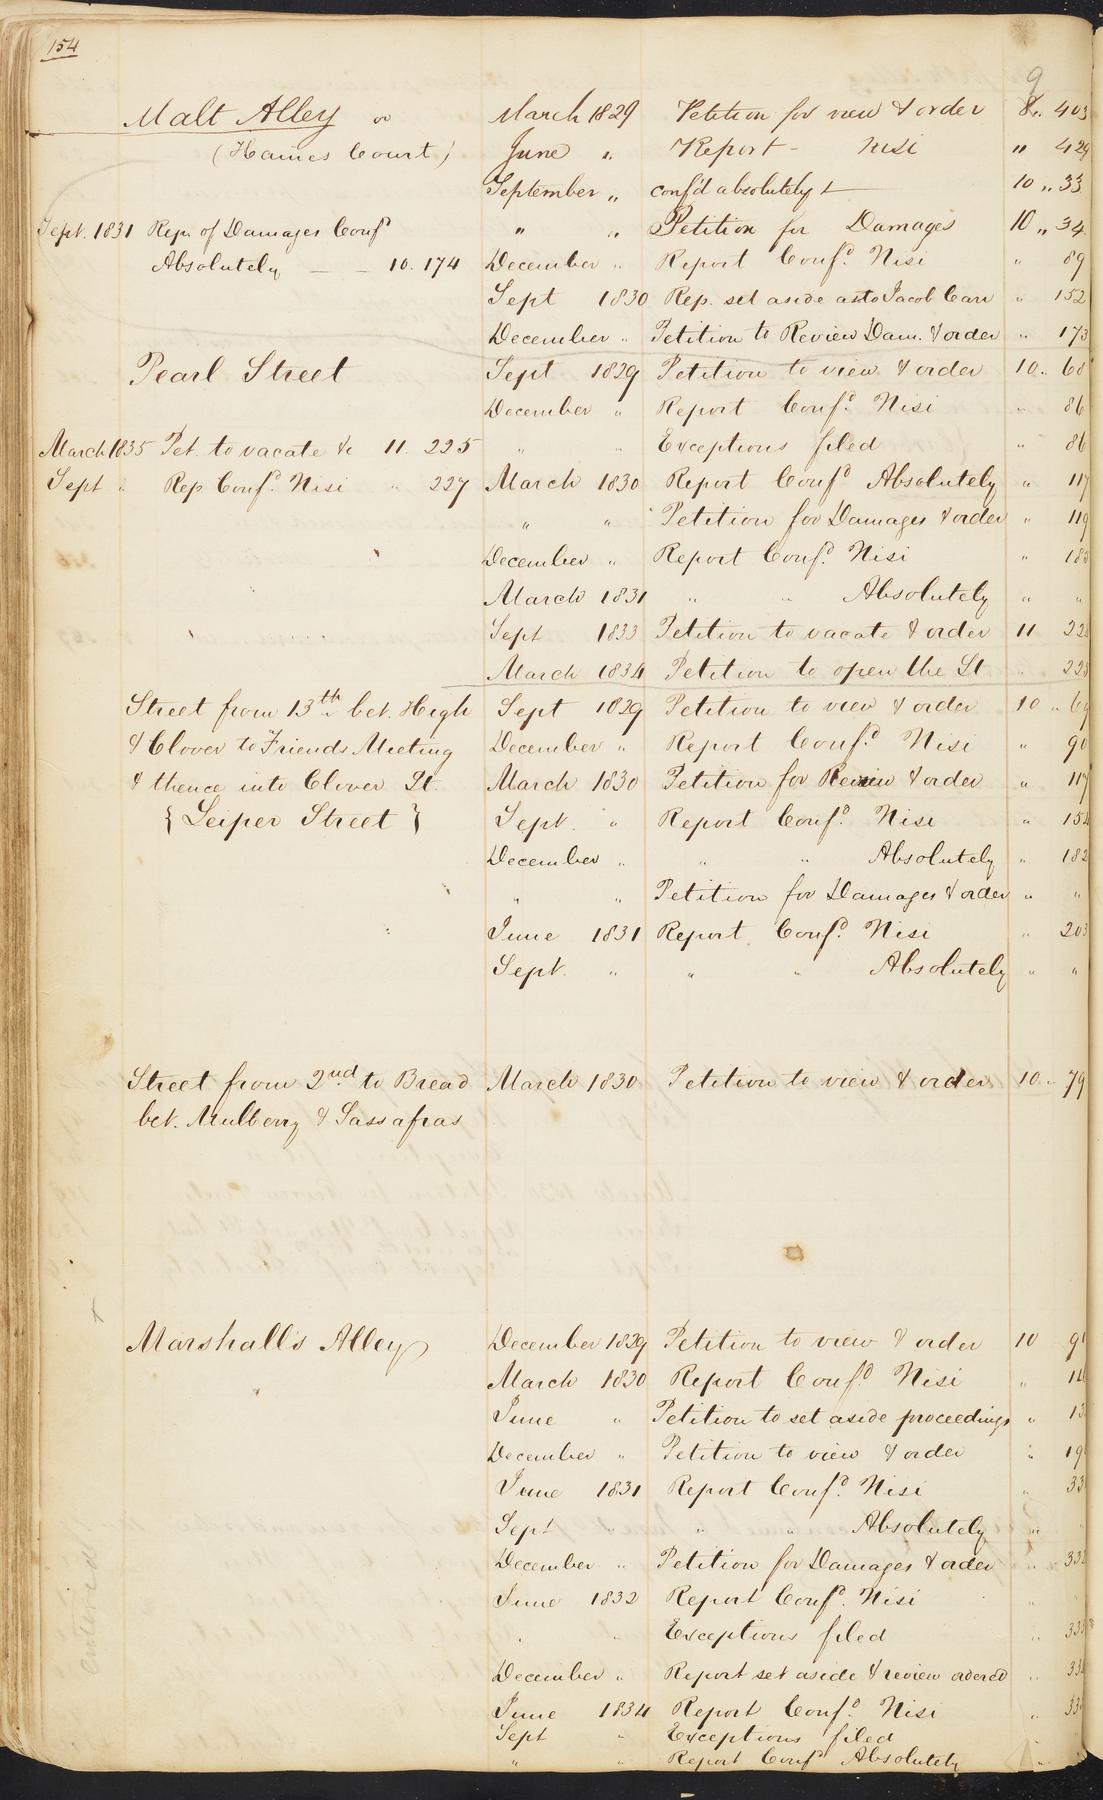 154
9
Malt Alley or March 1829 Petition for view & order 8 " 403
(Haines Court) June " Report - Nisi " 429
September " confd absolutely 10 " 33
Sept. 1831 Rep. of Damages Confd " " Petition for Damages 10 " 34
Absolutely — — 10. 174 December " Report Confd. Nisi " 89
Sept 1830 Rep. set aside as to Jacob Carr " 152
December " Petition to Review Dam. & order " 173
Pearl Street Sept 1829 Petition to view & order 10 " 68
December " Report Confd. Nisi " 86
March 1835 Pet. to vacate &c 11. 225 " " Exceptions filed " 86
Sept " Rep Confd. Nisi " 227 March 1830 Report Confd Absolutely " 117
" " Petition for Damages & order " 119
December " Report Confd. Nisi "
March 1831 " " Absolutely " "
Sept 1833 Petition to vacate & order 11
March 1834 Petition to open the St "
Street from 13th bet. High Sept 1829 Petition to view & order 10 " 69
& Clover to Friends Meeting December " Report Confd. Nisi " 90
& thence into Clover St. March 1830 Petition for Review & order " 117
{ Leiper Street } Sept. " Report Confd. Nisi "
December " " " Absolutely " 182
" " Petition for Damages & order " "
June 1831 Report Confd. Nisi " 203
Sept. " " " Absolutely " "
Street from 2nd to Bread March 1830 Petition to view & order 10 " 79
bet. Mulberry & Sassafras
Marshall's Alley December 1829 Petition to view & order 10
March 1830 Report Confd. Nisi "
June " Petition to set aside proceedings "
December " Petition to view & order "
June 1831 Report Confd. Nisi "
Sept " " " Absolutely "
December " Petition for Damages & order "
June 1832 Report Confd. Nisi "
" " Exceptions filed "
December " Report set aside & review ordered "
June 1834 Report Confd. Nisi "
Sept " Exceptions filed
" " Report Confd Absolutely "